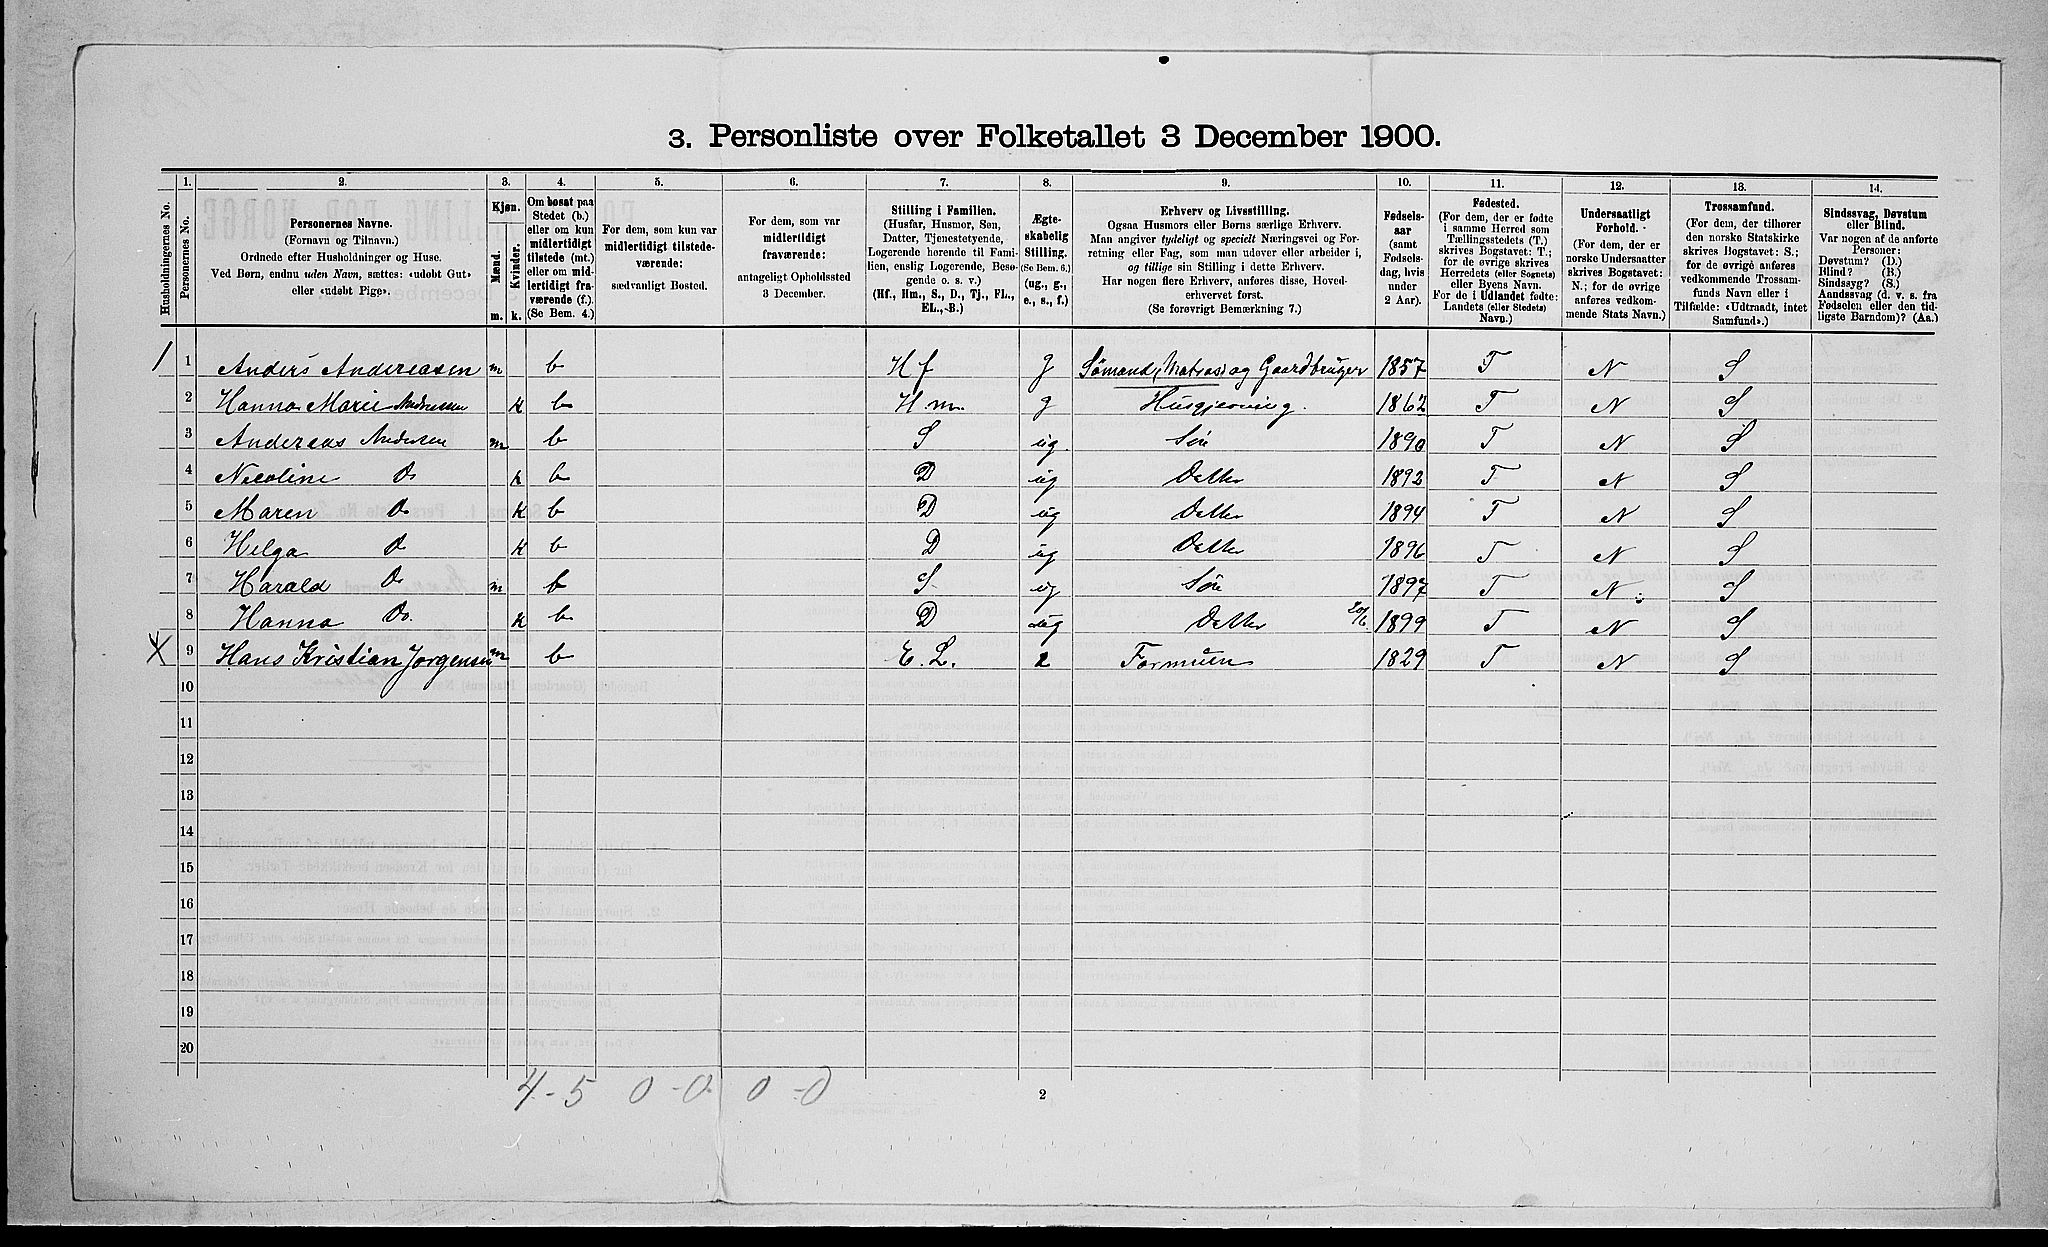 3. Personliste over Folketallet 3 December 1900.
Husholdningernes No.
1. Personernes No.
2. Personernes Navne.
(Fornavn og Tilnavn.)
Ordnede efter Husholdninger og Huse.
Ved Børn, endnu uden Navn, sættes: «udøbt Gut»
eller «udøbt Pige».
3. Kjøn.
Mænd. m.
Kvinder. k.
4. Om bosat paa
Stedet (b.)
eller om kun
midlertidigt
tilstede (mt.)
eller om mid-
lertidigt fra-
værende (f.).
(Se Bem. 4.)
5. For dem, som kun var
midlertidigt tilstede-
værende:
sædvanligt Bosted.
6. For dem, som var
midlertidigt
fraværende:
antageligt Opholdssted
3 December.
7. Stilling i Familien.
(Husfar, Husmor, Søn,
Datter, Tjenestetyende,
Logerende hørende til Fami-
lien, enslig Logerende, Besø-
gende o. s. v.)
(Hf., Hm., S., D., Tj., FL.,
EL., B.)
8. Ægte-
skabelig
Stilling.
(Se Bem. 6.)
(ug., g.,
e., s., f.)
9. Erhverv og Livsstilling.
Ogsaa Husmors eller Børns særlige Erhverv.
Man angiver tydeligt og specielt Næringsvei og For-
retning eller Fag, som man udøver eller arbeider i,
og tillige sin Stilling i dette Erhverv.
Har nogen flere Erhverv, anføres disse, Hoved-
erhvervet først.
(Se forøvrigt Bemærkning 7.)
10. Fødsels-
aar
(samt
Fødsels-
dag, hvis
under
2 Aar).
11. Fødested.
(For dem, der er fødte
i samme Herred som
Tællingsstedets (T.)
skrives Bogstavet: T.;
for de øvrige skrives
Herredets (eller Sognets)
eller Byens Navn.
For de i Udlandet fødte:
Landets (eller Stedets)
Navn.)
12. Undersaatligt
Forhold.
(For dem, der er
norske Undersaatter
skrives Bogstavet:
N.; for de øvrige
anføres vedkom-
mende Stats Navn.)
13. Trossamfund.
(For dem, der tilhører
den norske Statskirke
skrives Bogstavet: S.;
for de øvrige anføres
vedkommende Trossam-
funds Navn eller i
Tilfælde: «Udtraadt, intet
Samfund».)
14. Sindssvag, Døvstum
eller Blind.
Var nogen af de anførte
Personer:
Døvstum? (D.)
Blind? (B.)
Sindssyg? (S.)
Aandssvag (d. v. s. fra
Fødselen eller den tid-
ligste Barndom)? (Aa.)
1 1 Anders Andereasen m b Hf g Sømand, Matros og Gaardbruger 1857 T N S
2 Hanna Marie Andreasen k b Hm. g Husgjerning. 1862 T N S
3 Andereas Andersen m b S ug Søn 1890 T N S
4 Nicoline Do k b D ug Datter 1892 T N S
5 Maren Do k b D ug Datter 1894 T N S
6 Helga Do k b D ug Datter 1896 T N S
7 Harald Do m b S ug Søn 1897 T N S
8 Hanna Do. k b D ug Datter 20/6 1899 T N S
X 9 Hans Kristian Jørgensen m b E. L. Formuen 1829 T N S
10
11
12
13
14
15
16
17
18
19
20
4 - 5 0 - 0 0 - 0
2